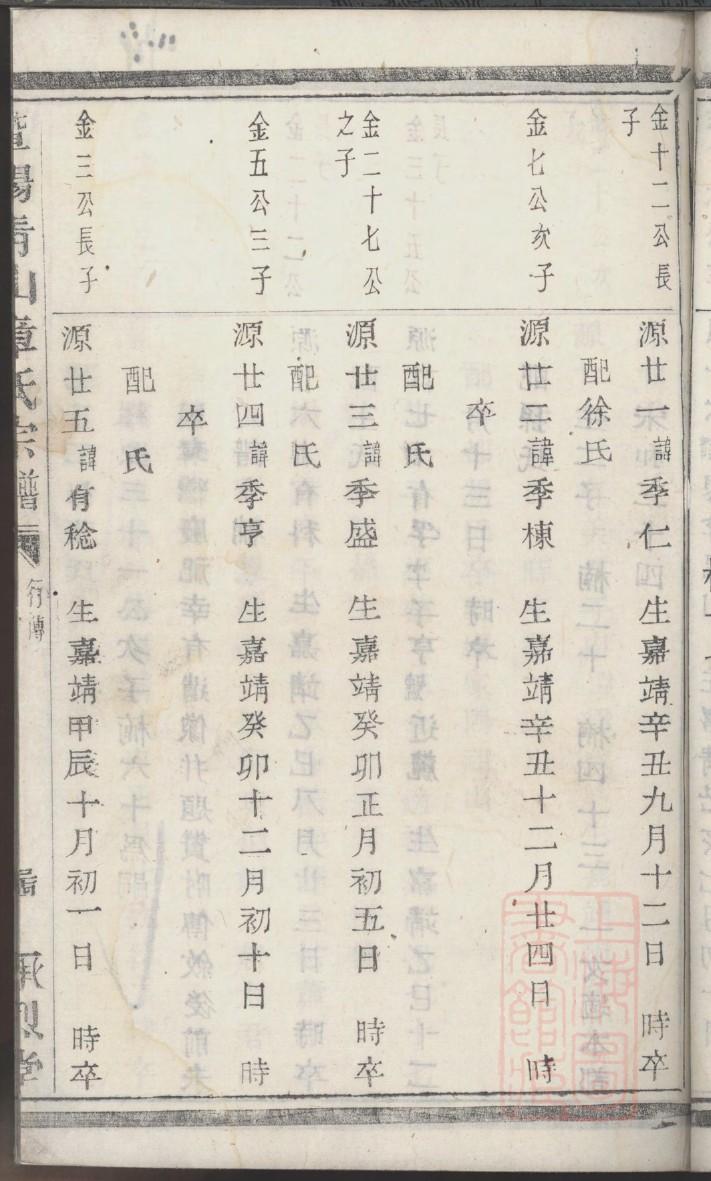 金十二公長
子
源廿一諱季仁 生嘉靖辛丑九月十二日 時卒
配徐氏
金七公次子
源廿二諱季棟 生嘉靖辛丑十二月廿四日 時
卒
配氏
金二十七公
之子
源廿三諱季盛 生嘉靖癸卯正月初五日 時卒
配氏
金五公三子
源廿四諱季亨 生嘉靖癸卯十二月初十日 時
卒
配氏
金三公長子
源廿五諱有稔 生嘉靖甲辰十月初一日 時卒
山章氏宗譜 行傳